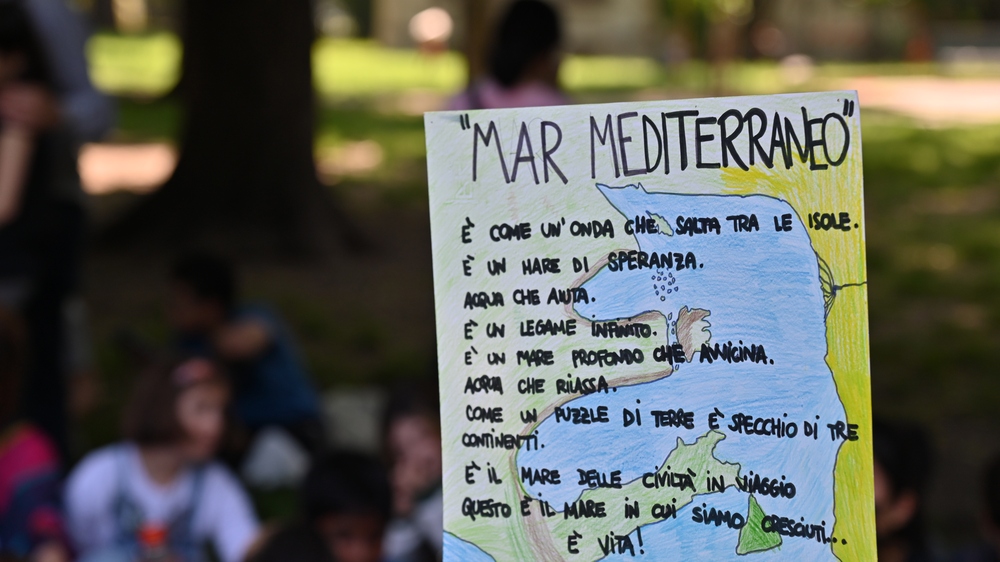 "MAR MEDITERRANEO"
È COME UN'ONDA CHE SALTA TRA LE ISOLE.
È UN MARE DI SPERANZA.
ACQUA CHE AIUTA.
È UN LEGAME INFINITO.
E' UN MARE PROFONDO CHE AVVICINA.
ACQUA CHE RILASSA.
COME UN PUZZLE DI TERRE È SPECCHIO DI TRE
CONTINENTI.
È IL MARE DELLE CIVILTÀ IN VIAGGIO
QUESTO È IL MARE IN CUI SIAMO CRESCIUTI...
È VITA!